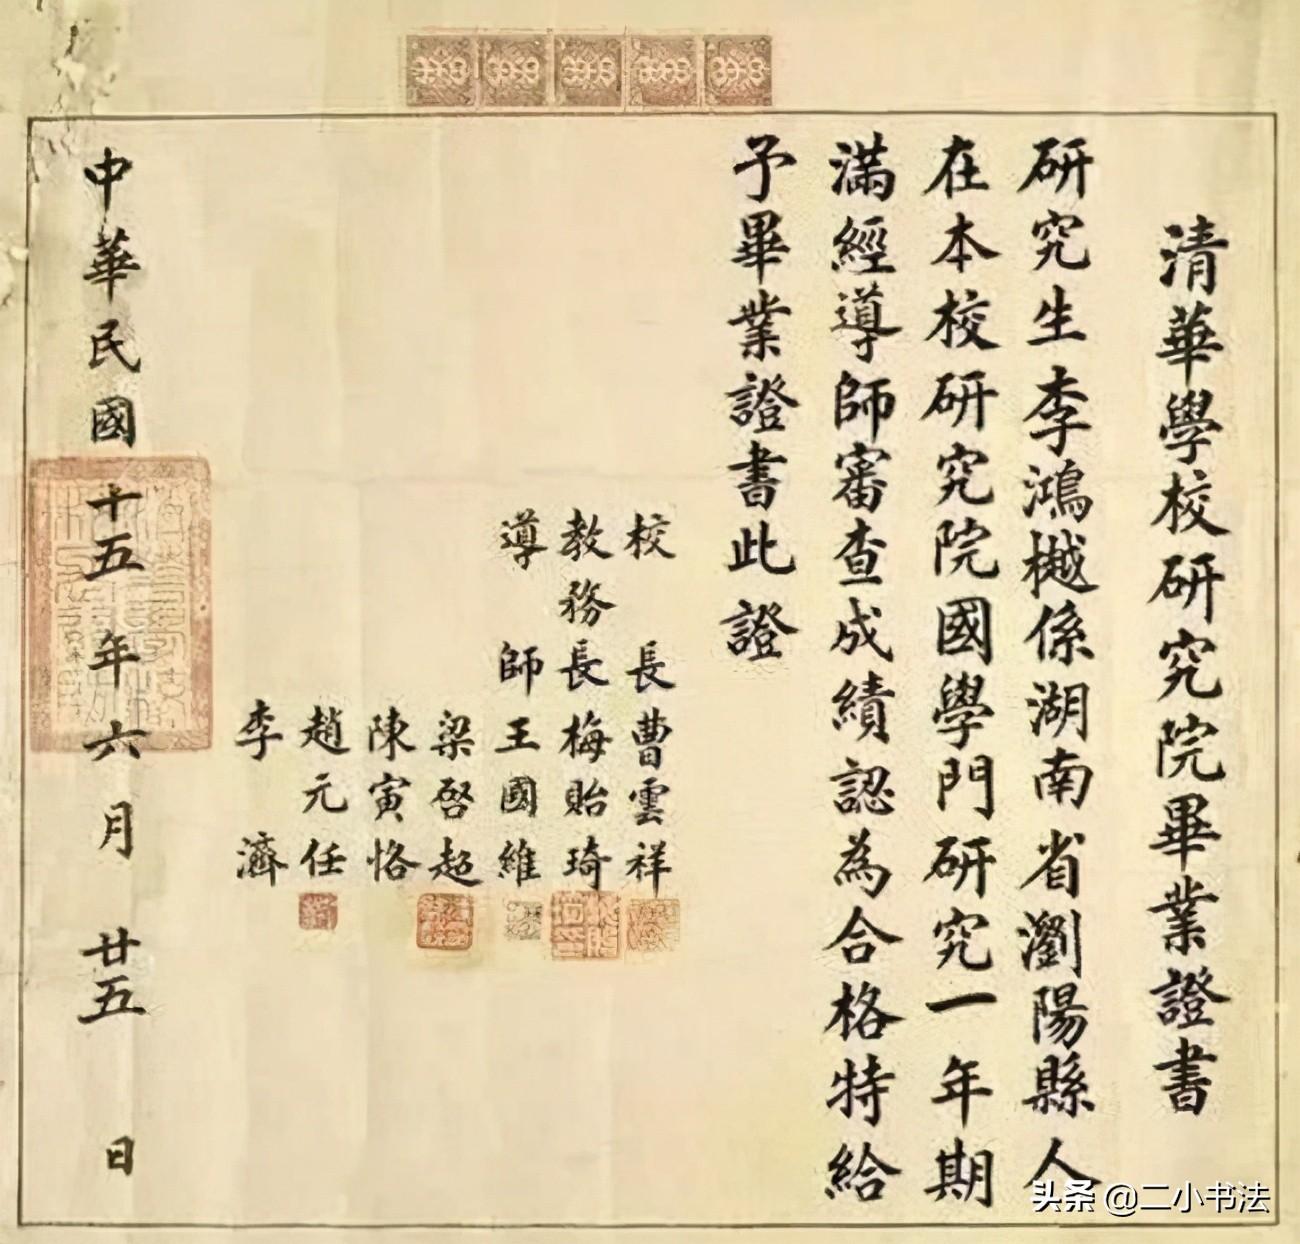 清華學校研究院畢業證書
研究生李鴻樾係湖南省瀏陽縣人
在本校研究院國學門研究一年期
滿經導師審查成績認為合格特給
予畢業證書此證
校長曹雲祥
教務長梅貽琦
導師王國維
梁啓超
陳寅恪
趙元任
李濟
中華民國十五年六月廿五日
头条 @二小书法